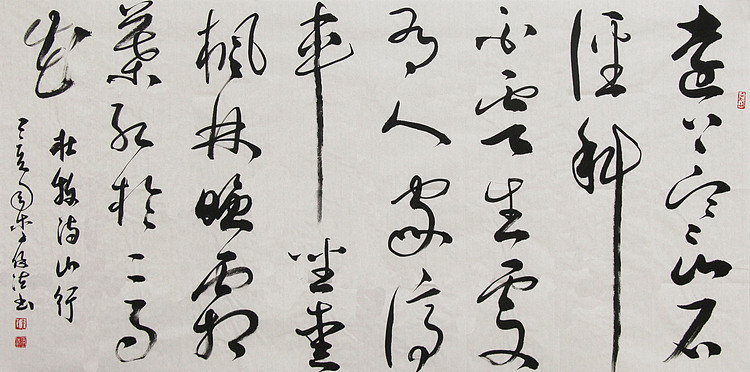 遠上寒山石
徑斜
白雲生處
有人家停
車坐愛
楓林晚霜
葉紅於二月
花
杜牧詩山行
書